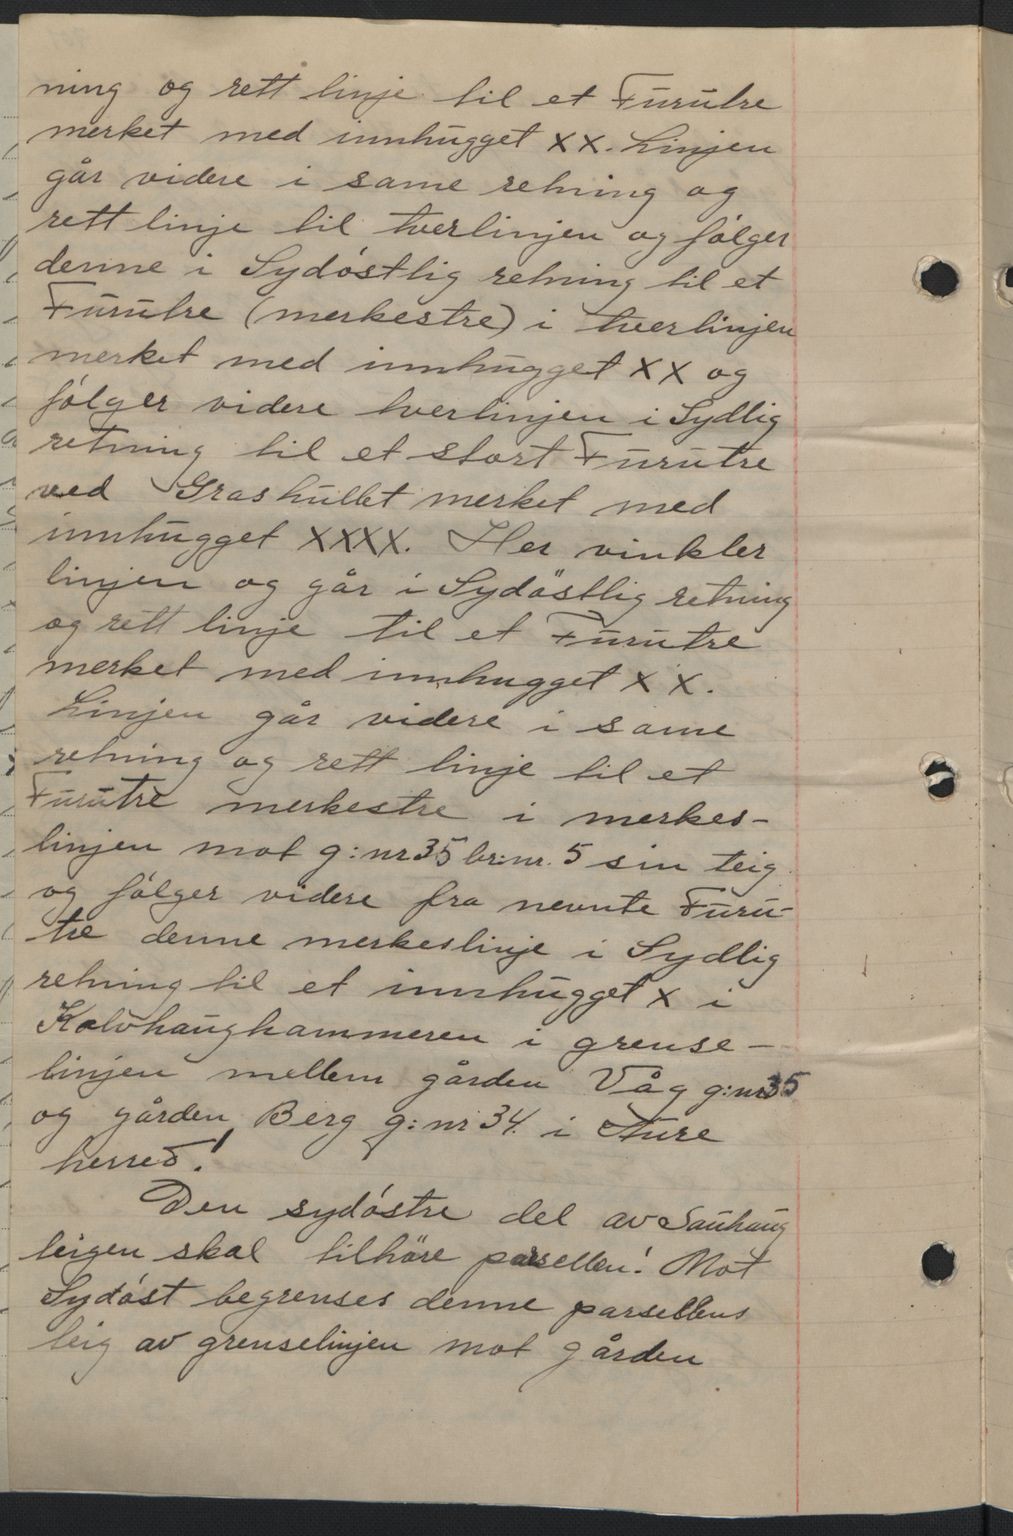 ning og rett linje til et Furutre
merket med innhugget XX. Linjen
går videre i same retning og
rett linje til tverlinjen og følger
denne i Sydøstlig retning til et
Furutre (merkestre) i tverlinjen
merket med innhugget XX og
følger videre tverlinjen i Sydlig
retning til et stort Furutre
ved Grashullet merket med
innhugget XXXX. Her vinkler
linjen og går i Sydöstlig retning
og rett linje til et Furutre
merket med innhugget X X.
Linjen går videre i same
retning og rett linje til et
Furutre merkestre i merkes-
linjen mot g:nr 35 br:nr. 5 sin teig
og følger videre fra nevnte Furu-
tre denne merkeslinje i Sydlig
retning til et innhugget X i
Kalvhaughammeren i grense-
linjen mellem gården Våg g:nr 35
og gården Berg g:nr 34. i Aure
herred!
Den sydøstre del av Sauhaug
teigen skal tilhöre parsellen! Mot
Sydøst begrenses denne parsellens
teig av grenselinjen mot gården